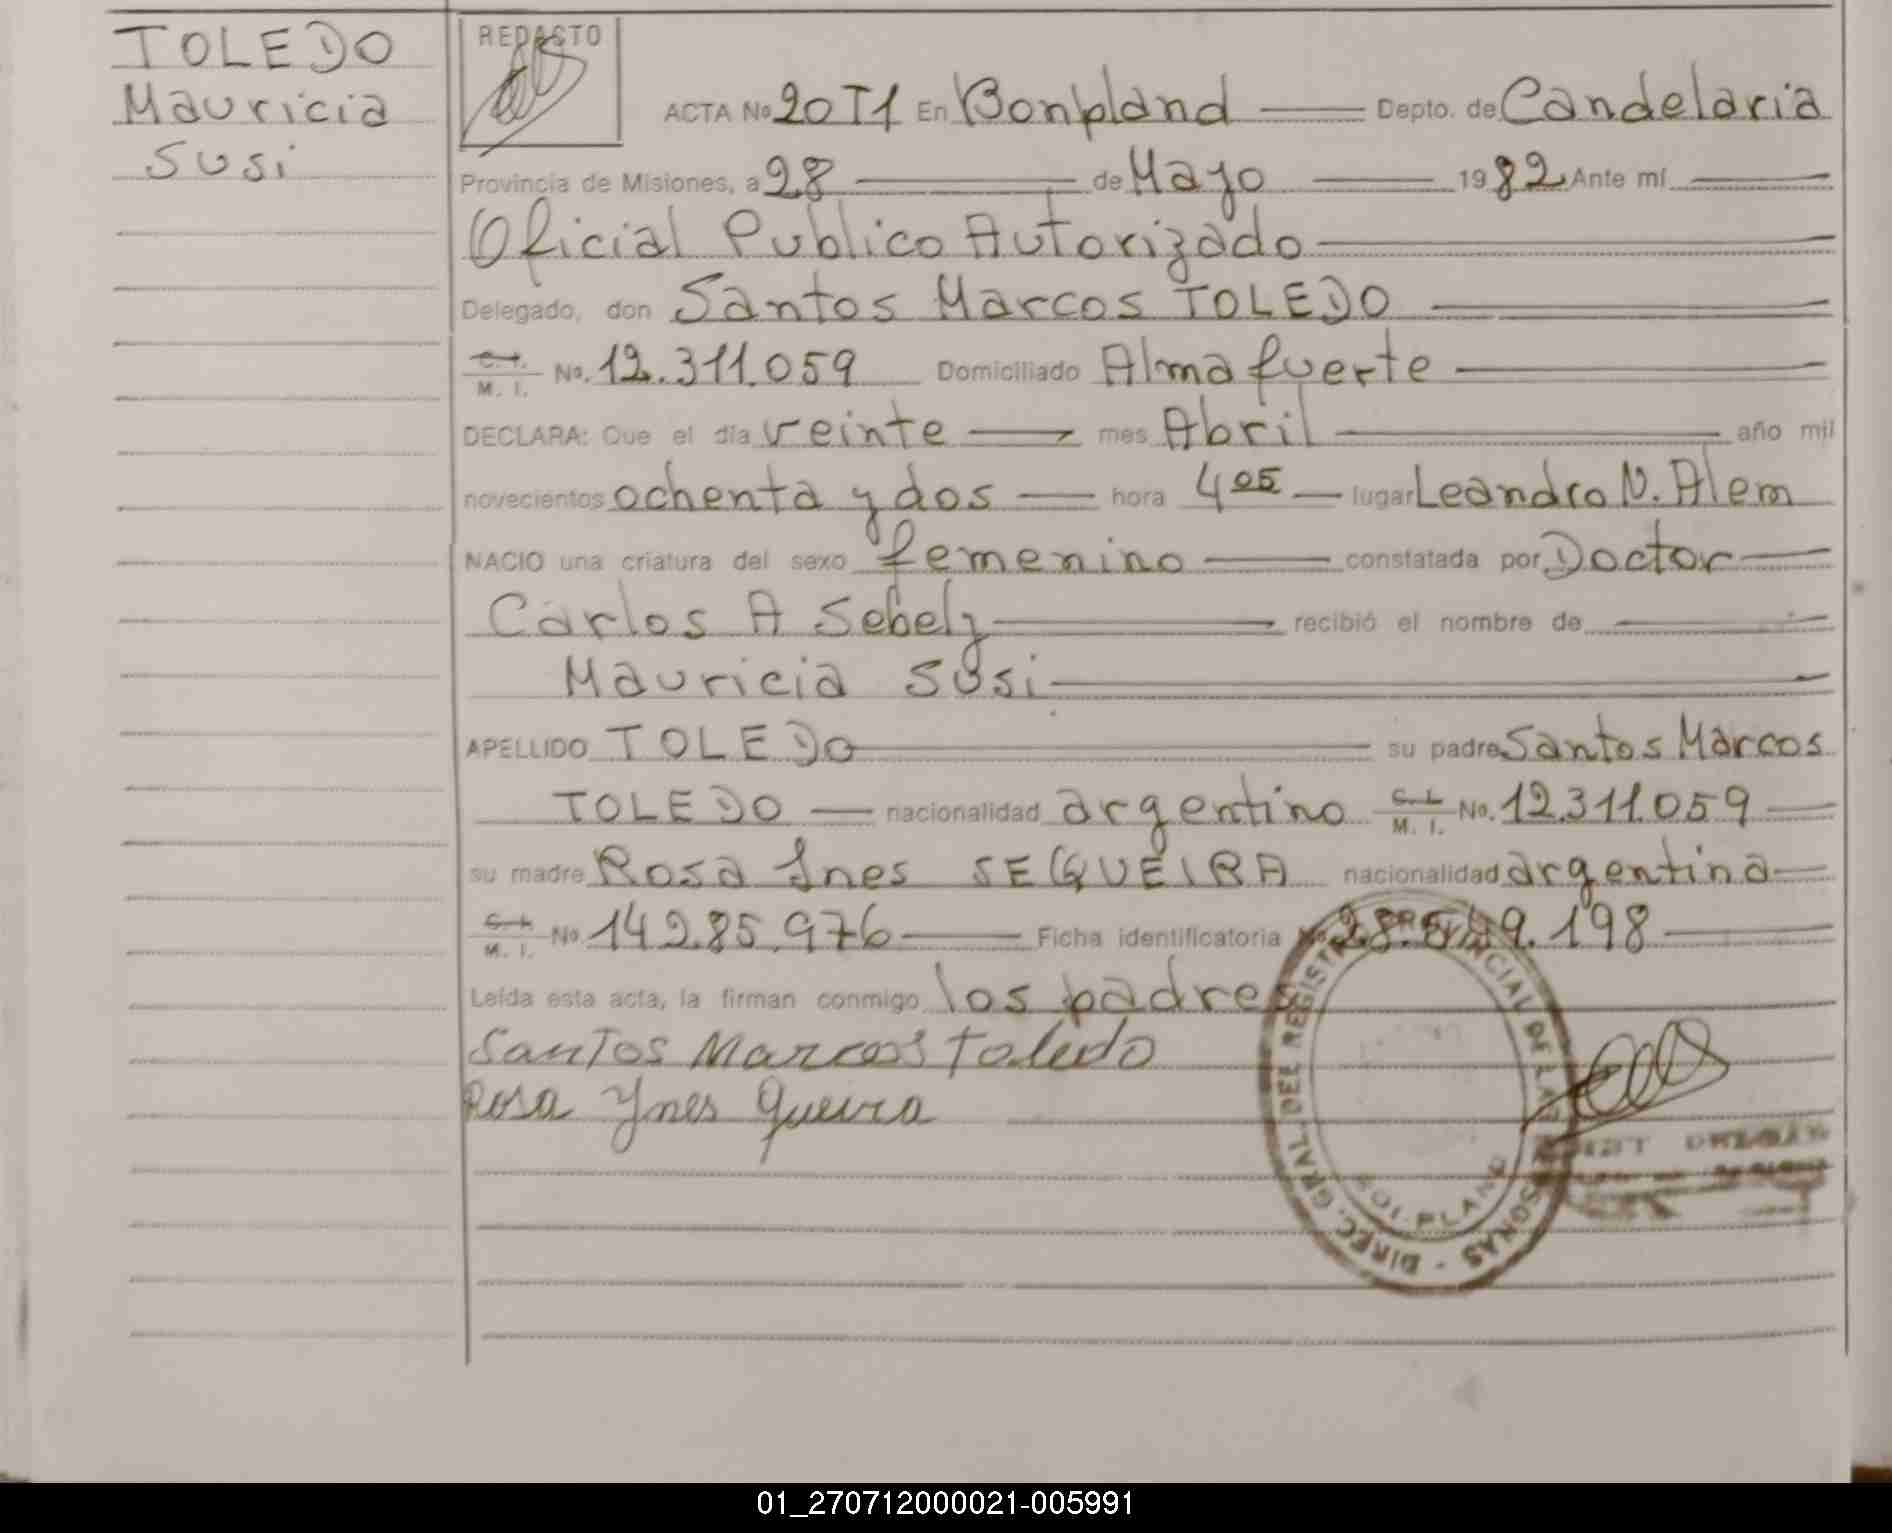 TOLEDO
Mauricia
Susi
REDACTO
ACTA No 20 T1 En Bonpland Depto. de Candelaria
Provincia de Misiones, a 28 de Mayo 1982 Ante mí
Oficial Publico Autorizado
Delegado, don Santos Marcos TOLEDO
C. I. / M. I. No. 12.311.059 Domiciliado Almafuerte
DECLARA: Que el día veinte mes Abril año mil
novecientos ochenta y dos hora 4 05 lugar Leandro N. Alem
NACIO una criatura del sexo femenino constatada por Doctor
Carlos A Sebely recibió el nombre de
Mauricia Susi
APELLIDO TOLEDO su padre Santos Marcos
TOLEDO nacionalidad argentino C. I. / M. I. No. 12.311.059
su madre Rosa Ines SEQUEIRA nacionalidad argentina
C. I. / M. I. No. 14.285.976 Ficha identificatoria No. 28.549.198
Leída esta acta, la firman conmigo los padres
Santos Marcos Toledo
Rosa Ynes Queira
DIREC. GRAL. DEL REGISTRO PROVINCIAL DE LAS PERSONAS
01_270712000021-005991